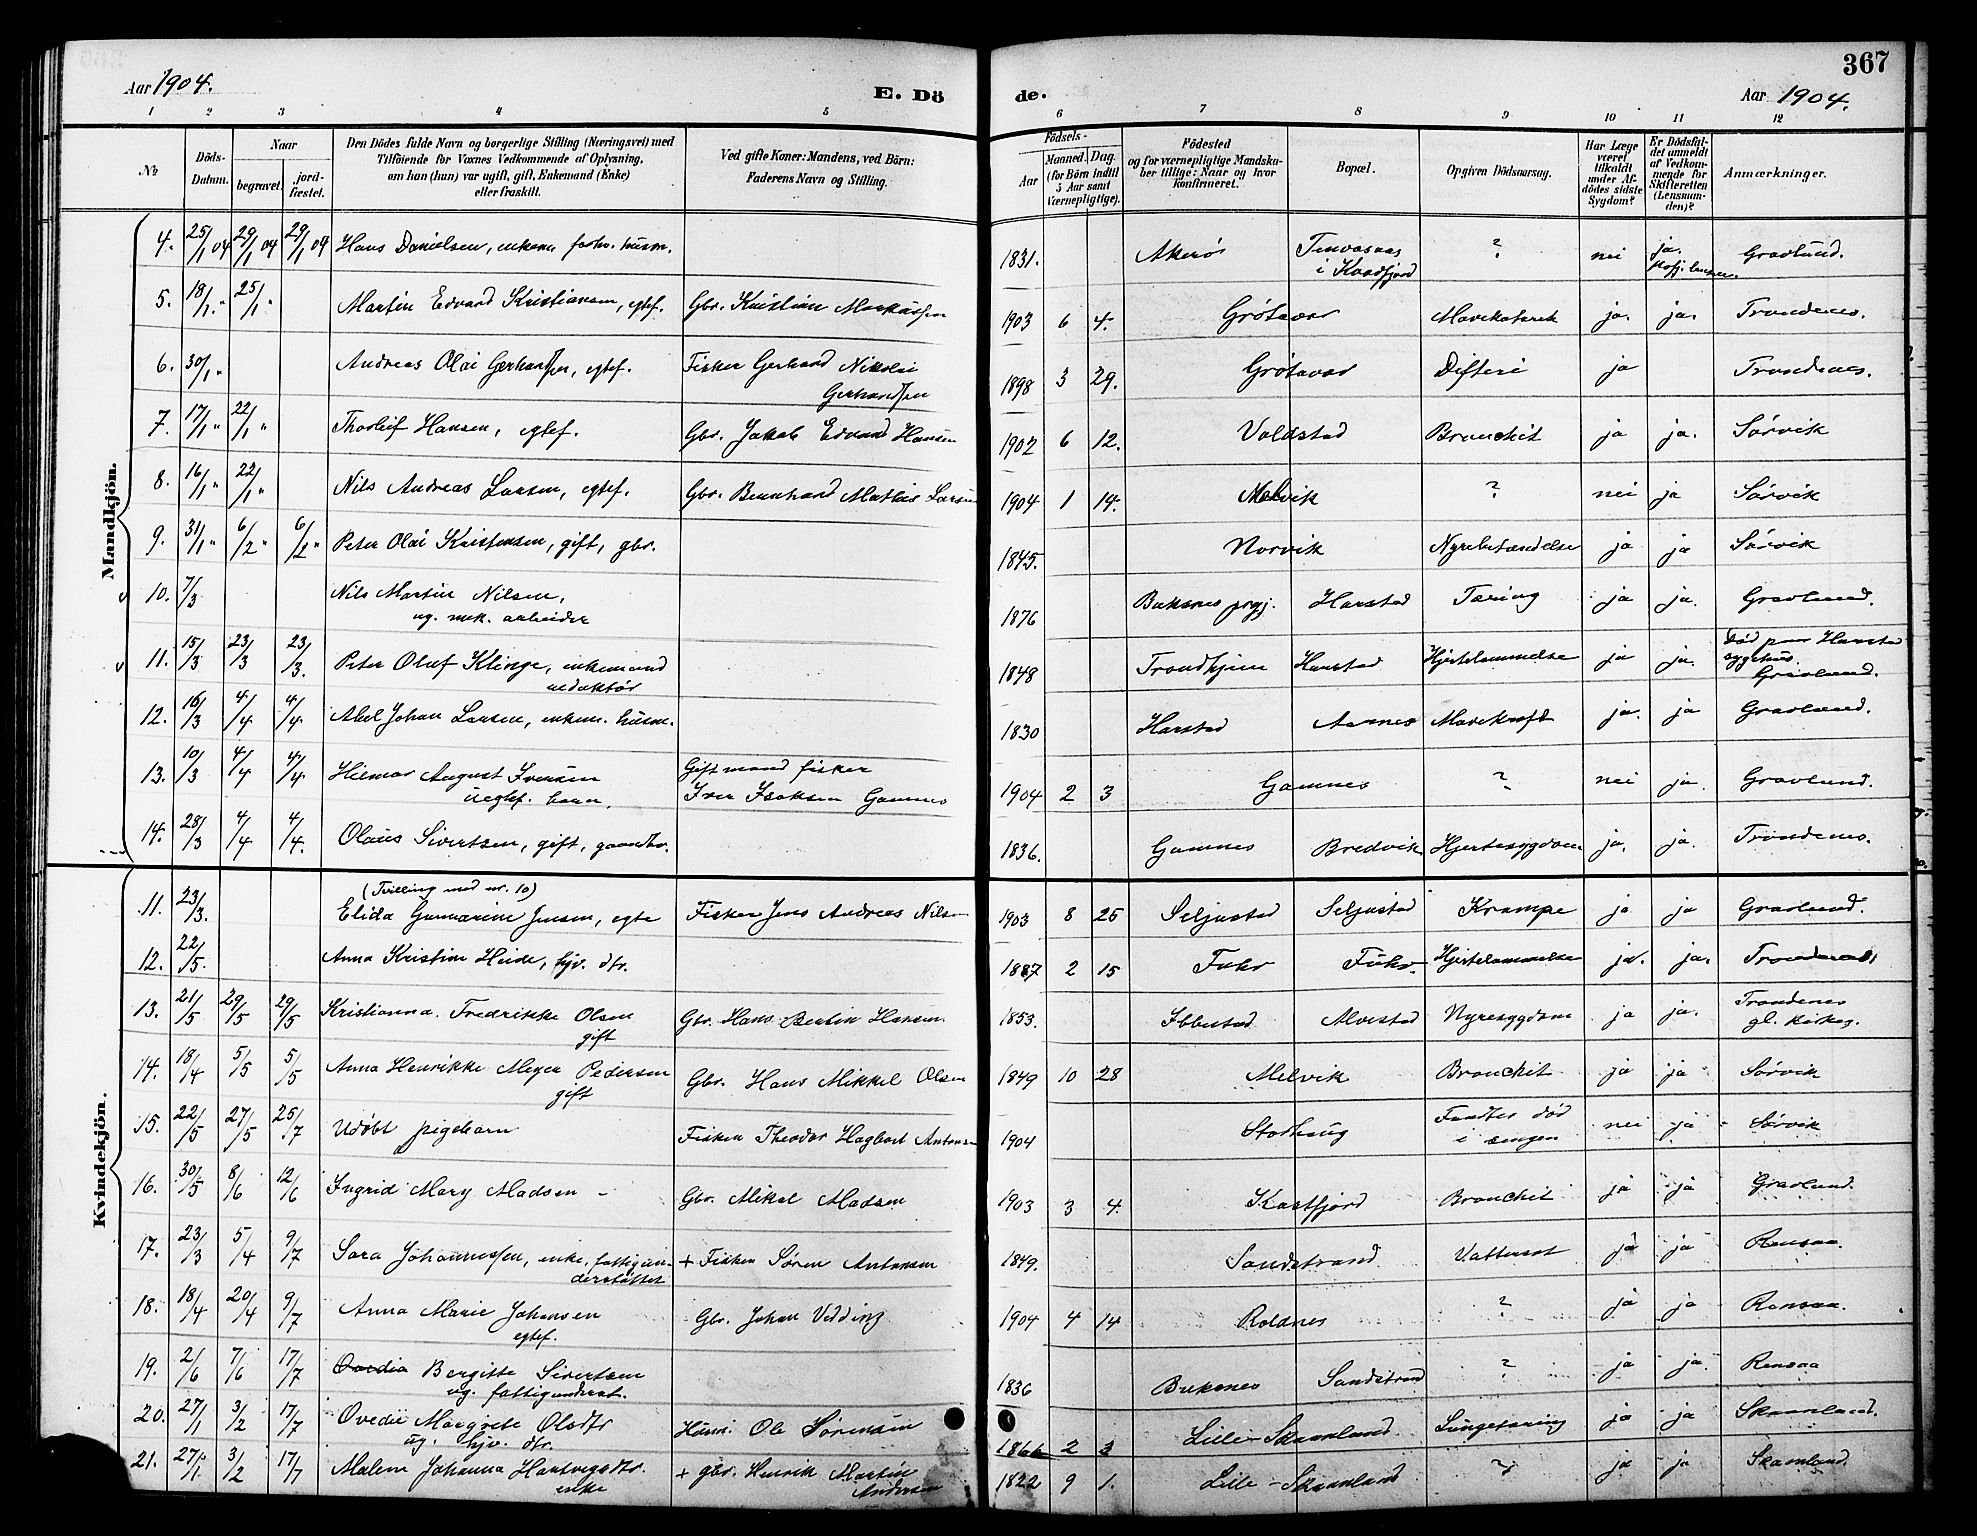 367
Aar 1904.
E. Dö
de.
Aar 1904.
1 2 3 4 5 6 7 8 9 10 11 12
Nr
Döds-Datum.
Naar
begravet.
jord-fæstet.
Den Dödes fulde Navn og borgerlige Stilling (Næringsvei) med
Tilföiende for Voxnes Vedkommende af Oplysning,
om han (hun) var ugift, gift, Enkemand (Enke)
eller fraskilt.
Ved gifte Koner: Mandens, ved Börn:
Faderens Navn og Stilling.
Födsels-
Aar
Maaned. Dag.
(for Börn indtil
5 Aar samt
Værnepligtige).
Födested
og for værnepligtige Mandsku-
ber tillige: Naar og hvor
konfirmeret.
Bopæl.
Opgiven Dödsaarsag.
Har Læge
været
tilkaldt
under Af-
dödes sidste
Sygdom?
Er Dödsfal-
det anmeldt
af Vedkom-
mende for
Skifteretten
(Lensman-
den)?
Anmærkninger.
Mandkjön.
4. 25/1 04 29/1 04 29/1 04 Hans Danielsen, enkem. forhv. husm. 1831. Akerö i Kvædfjord ? nei ja Gravlund.
5. 18/1 " 25/1 " Martin Edvard Kristiansen, egtef. Gbr. Kristian Markussen 1903 6 4. Grötavær Mavekatarrh ja. ja. Trondenes.
6. 30/1 " Andreas Olai Gerhardsen, egtef. Fisker Gerhard Nikolai
Gerhardsen 1898 3 29. Grötavær Difteri ja Trondenes.
7. 17/1 " 22/1 " Thorleif Hansen, egtef. Gbr. Jakob Edvard Hansen 1902 6 12. Voldstad Bronchit ja ja. Sörvik
8. 16/1 " 22/1 " Nils Andreas Larsen, egtef. Gbr. Bernhard Mathis Larsen 1904 1 14. Melvik ? nei ja Sörvik
9. 31/1 " 6/2 " 6/2 " Peter Olai Kristensen, gift, gbr. 1845. Norvik Nyrebetændelse ja ja Sörvik
10. 7/3 Nils Martin Nilsen,
ug. mek. arbeider 1876 Buksnes prgj. Harstad Tæring ja ja. Gravlund.
11. 15/3 23/3 23/3. Peter Oluf Klinge, enkemand
redaktör 1848 Trondhjem Harstad Hjertelammelse ja ja. Död paa Harstad
sygehus.
Gravlund.
12. 16/3 4/4 4/4. Abel Johan Larsen, enkem. husm. 1830 Harstad Aarnes Mavekræft ja. ja Gravlund.
13. 10/3 4/4 4/4. Hilmar August Iversen
uegtef. barn. Gift mand fisker
Iver Isaksen Gamnes 1904 2 3 Gamnes ? nei ja. Gravlund.
14. 28/3 4/4 4/4. Olaus Sivertsen, gift, gaardbr. 1836. Gamnes Bredvik Hjertesygdom ja. ja. Trondenes.
Kvindekjön.
(Tvilling med nr. 10)
11. 23/3. Elida Gunnarine Jensen, egte Fisker Jens Andreas Nilsen 1903 8 25 Seljestad Seljestad Krampe ja ja Gravlund.
12. 22/5. Anna Kristine Heide, hjv. dtr. 1887 2 15 Fuhr Fuhr. Hjertelammelse ja. ja. Trondenes
13. 21/5 29/5 29/5 Kristianna Fredrikke Olsen
gift Gbr. Hans Bertin Hansen 1853. Ibbestad Alvestad Nyresygdom ja ja. Trondenes
gl. kirkeg.
14. 18/4 5/5 5/5 Anna Henrikke Meyer Pedersen
gift Gbr. Hans Mikkel Olsen 1849 10 28 Melvik Bronchit ja ja Sörvik
15. 22/5 27/5 25/7 Udöbt pigebarn Fisker Theodor Hagbart Antonsen 1904 Storhaug Fundtes död
i sengen nei ja Sörvik
16. 30/5 8/6 12/6 Ingrid Mary Madsen - Gbr. Mikal Madsen 1903 3 4. Kasfjord Bronchit ja ja Gravlund.
17. 23/3 5/4 9/7 Sara Johannessen, enke, fattigun-
derstöttet + Fisker Sören Antonsen 1849. Sandstrand Vattersot ja ja Rensaa.
18. 18/4 20/4 9/7 Anna Marie Johansen
egtef. Gbr. Johan Vedding 1904 4 14 Roldnes ? ja ja Rensaa.
19. 2/6 7/6 17/7 Ovedia Bergitte Sivertsen
ug. fattigunderst. 1836 Buksnes Sandstrand ? ja ja. Rensaa
20. 27/1 3/2 17/7 Ovedie Margrete Olsdtr
ug. hjv. dtr. Husm. Ole Sörensen 1866 2 3 Lille-Skaanland Lungetæring ja ja Skaanland.
21. 27/1. 3/2 17/7 Malene Johanna Hartvigsdtr.
enke + gbr. Henrik Martin
Andersen 1822 9 1. Lille-Skaanland ? ja ja Skaanland.